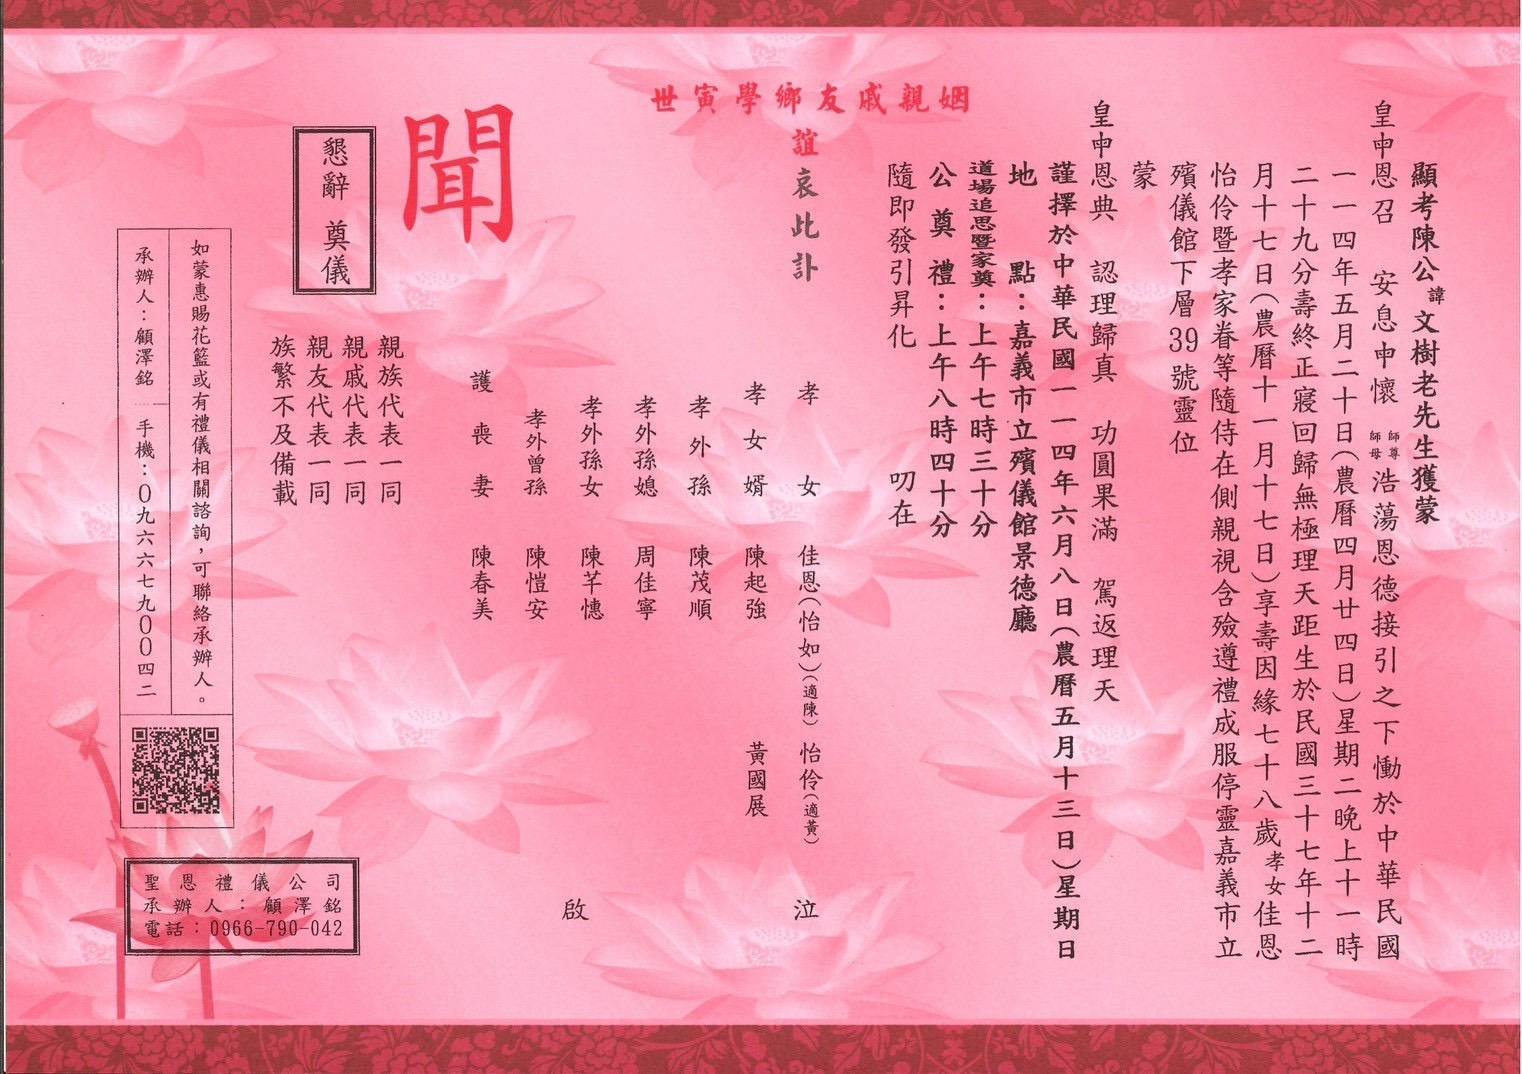 顯考陳公諱文樹老先生獲蒙
皇申恩召　安息申懷　師尊師母浩蕩恩德接引之下慟於中華民國
一一四年五月二十日(農曆四月廿四日)星期二晚上十一時
二十九分壽終正寢回歸無極理天距生於民國三十七年十二
月十七日(農曆十一月十七日)享壽因緣七十八歲孝女佳恩
怡伶暨孝家眷等隨侍在側親視含殮遵禮成服停靈嘉義市立
殯儀館下層39號靈位
蒙
皇申恩典　認理歸真　功圓果滿　駕返理天
謹擇於中華民國一一四年六月八日(農曆五月十三日)星期日
地　　點：嘉義市立殯儀館景德廳
道場追思暨家奠：上午七時三十分
公奠禮：上午八時四十分
隨即發引昇化　　叨在
姻親戚友鄉學寅世
誼哀此訃
聞
孝女　佳恩(怡如)(適陳)　怡伶(適黃)　泣
孝女婿　陳起強　黃國展
孝外孫　陳茂順
孝外孫媳　周佳寧
孝外孫女　陳芊憓
孝外曾孫　陳愷安
護喪妻　陳春美
啟
親族代表一同
親戚代表一同
親友代表一同
族繁不及備載
懇辭　奠儀
如蒙惠賜花籃或有禮儀相關諮詢，可聯絡承辦人。
承辦人：顧澤銘　手機：０九六六七九００四二
聖恩禮儀公司
承辦人：顧澤銘
電話：0966-790-042